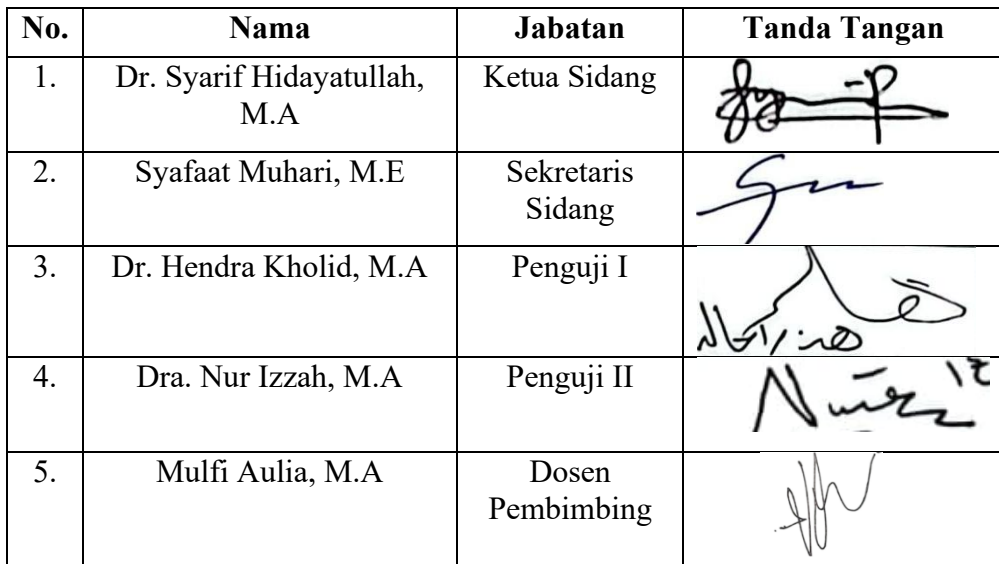 No. Nama Jabatan Tanda Tangan
1. Dr. Syarif Hidayatullah, Ketua Sidang
M.A
2. Syafaat Muhari, M.E Sekretaris
Sidang
3. Dr. Hendra Kholid, M.A Penguji I
4. Dra. Nur Izzah, M.A Penguji II
5. Mulfi Aulia, M.A Dosen
Pembimbing